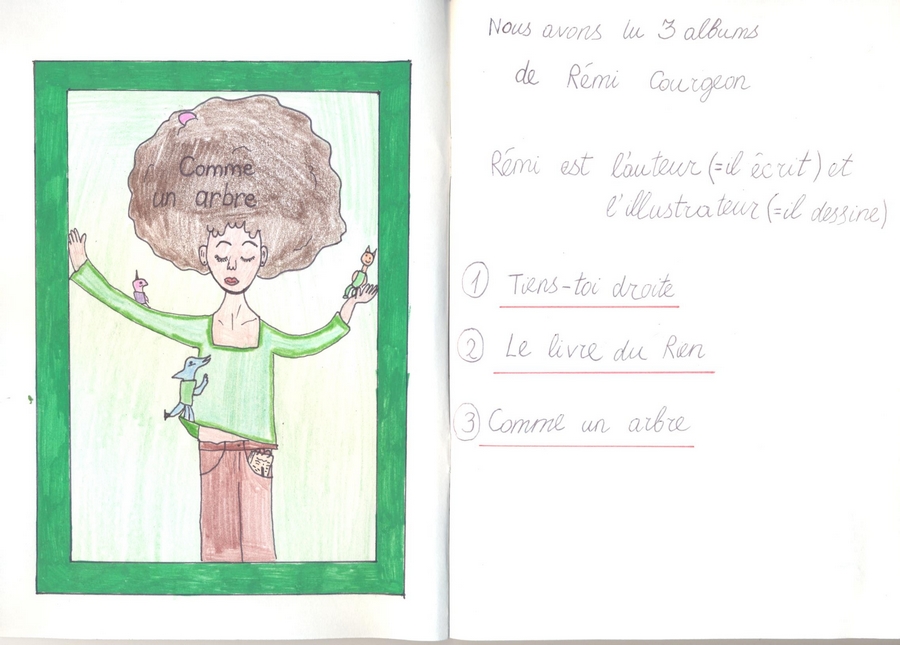 Comme
un arbre
Nous avons lu 3 albums
de Rémi Courgeon
Rémi est l'auteur (=il écrit) et
l'illustrateur (=il dessine)
① Tiens-toi droite
② Le livre du Rien
③ Comme un arbre